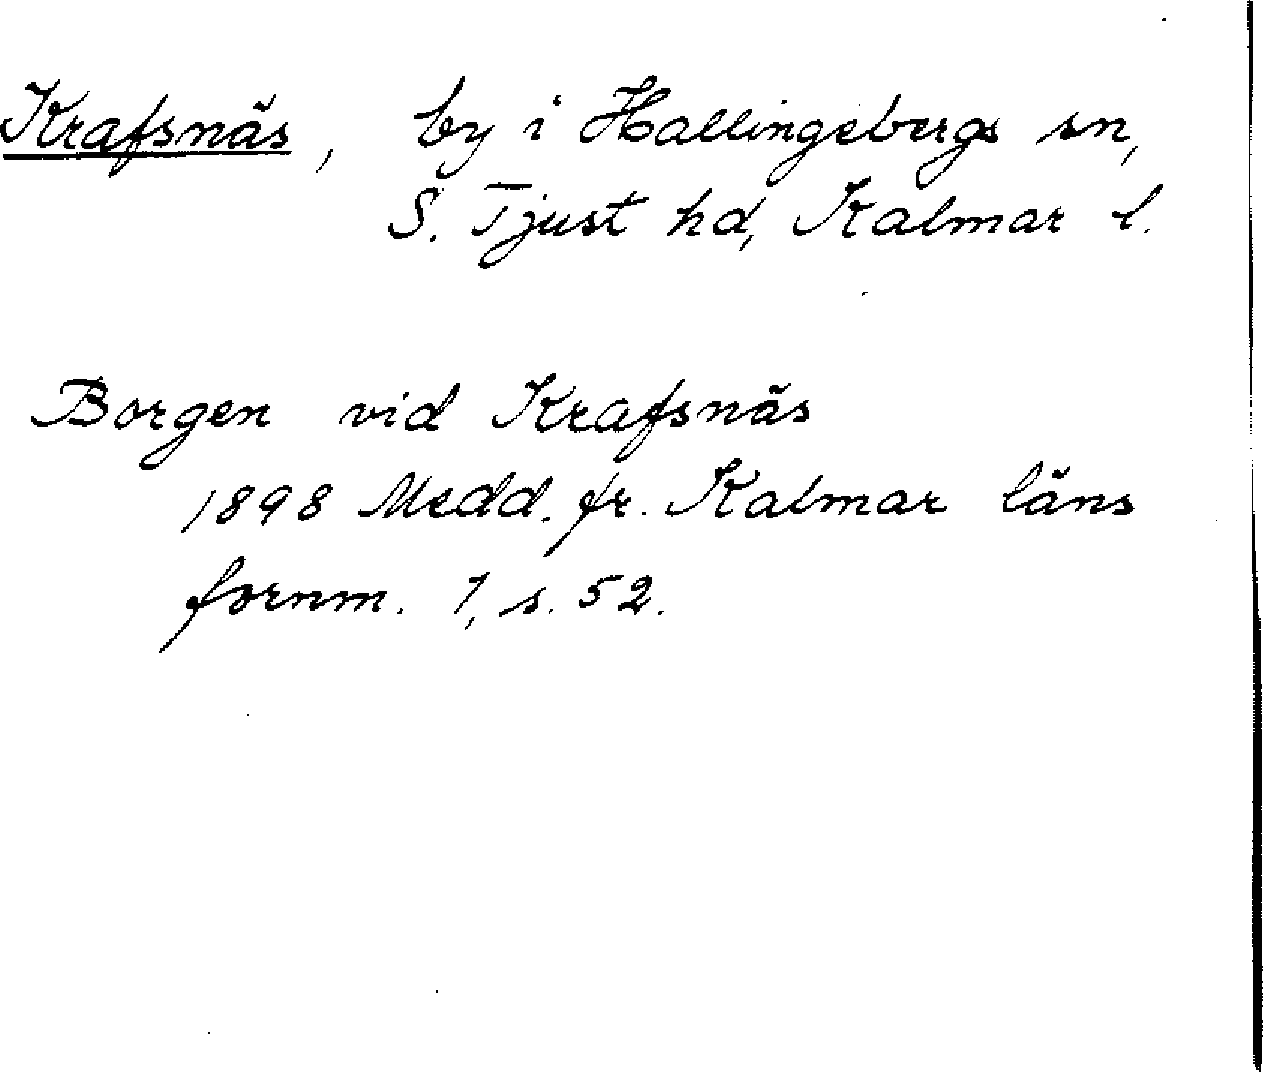 Krafsnäs, by i Hallingebergs sn,
S. Tjust hd, Kalmar l.
Borgen vid Krafsnäs
1898 Medd. fr. Kalmar läns
fornm. 1, s. 52.